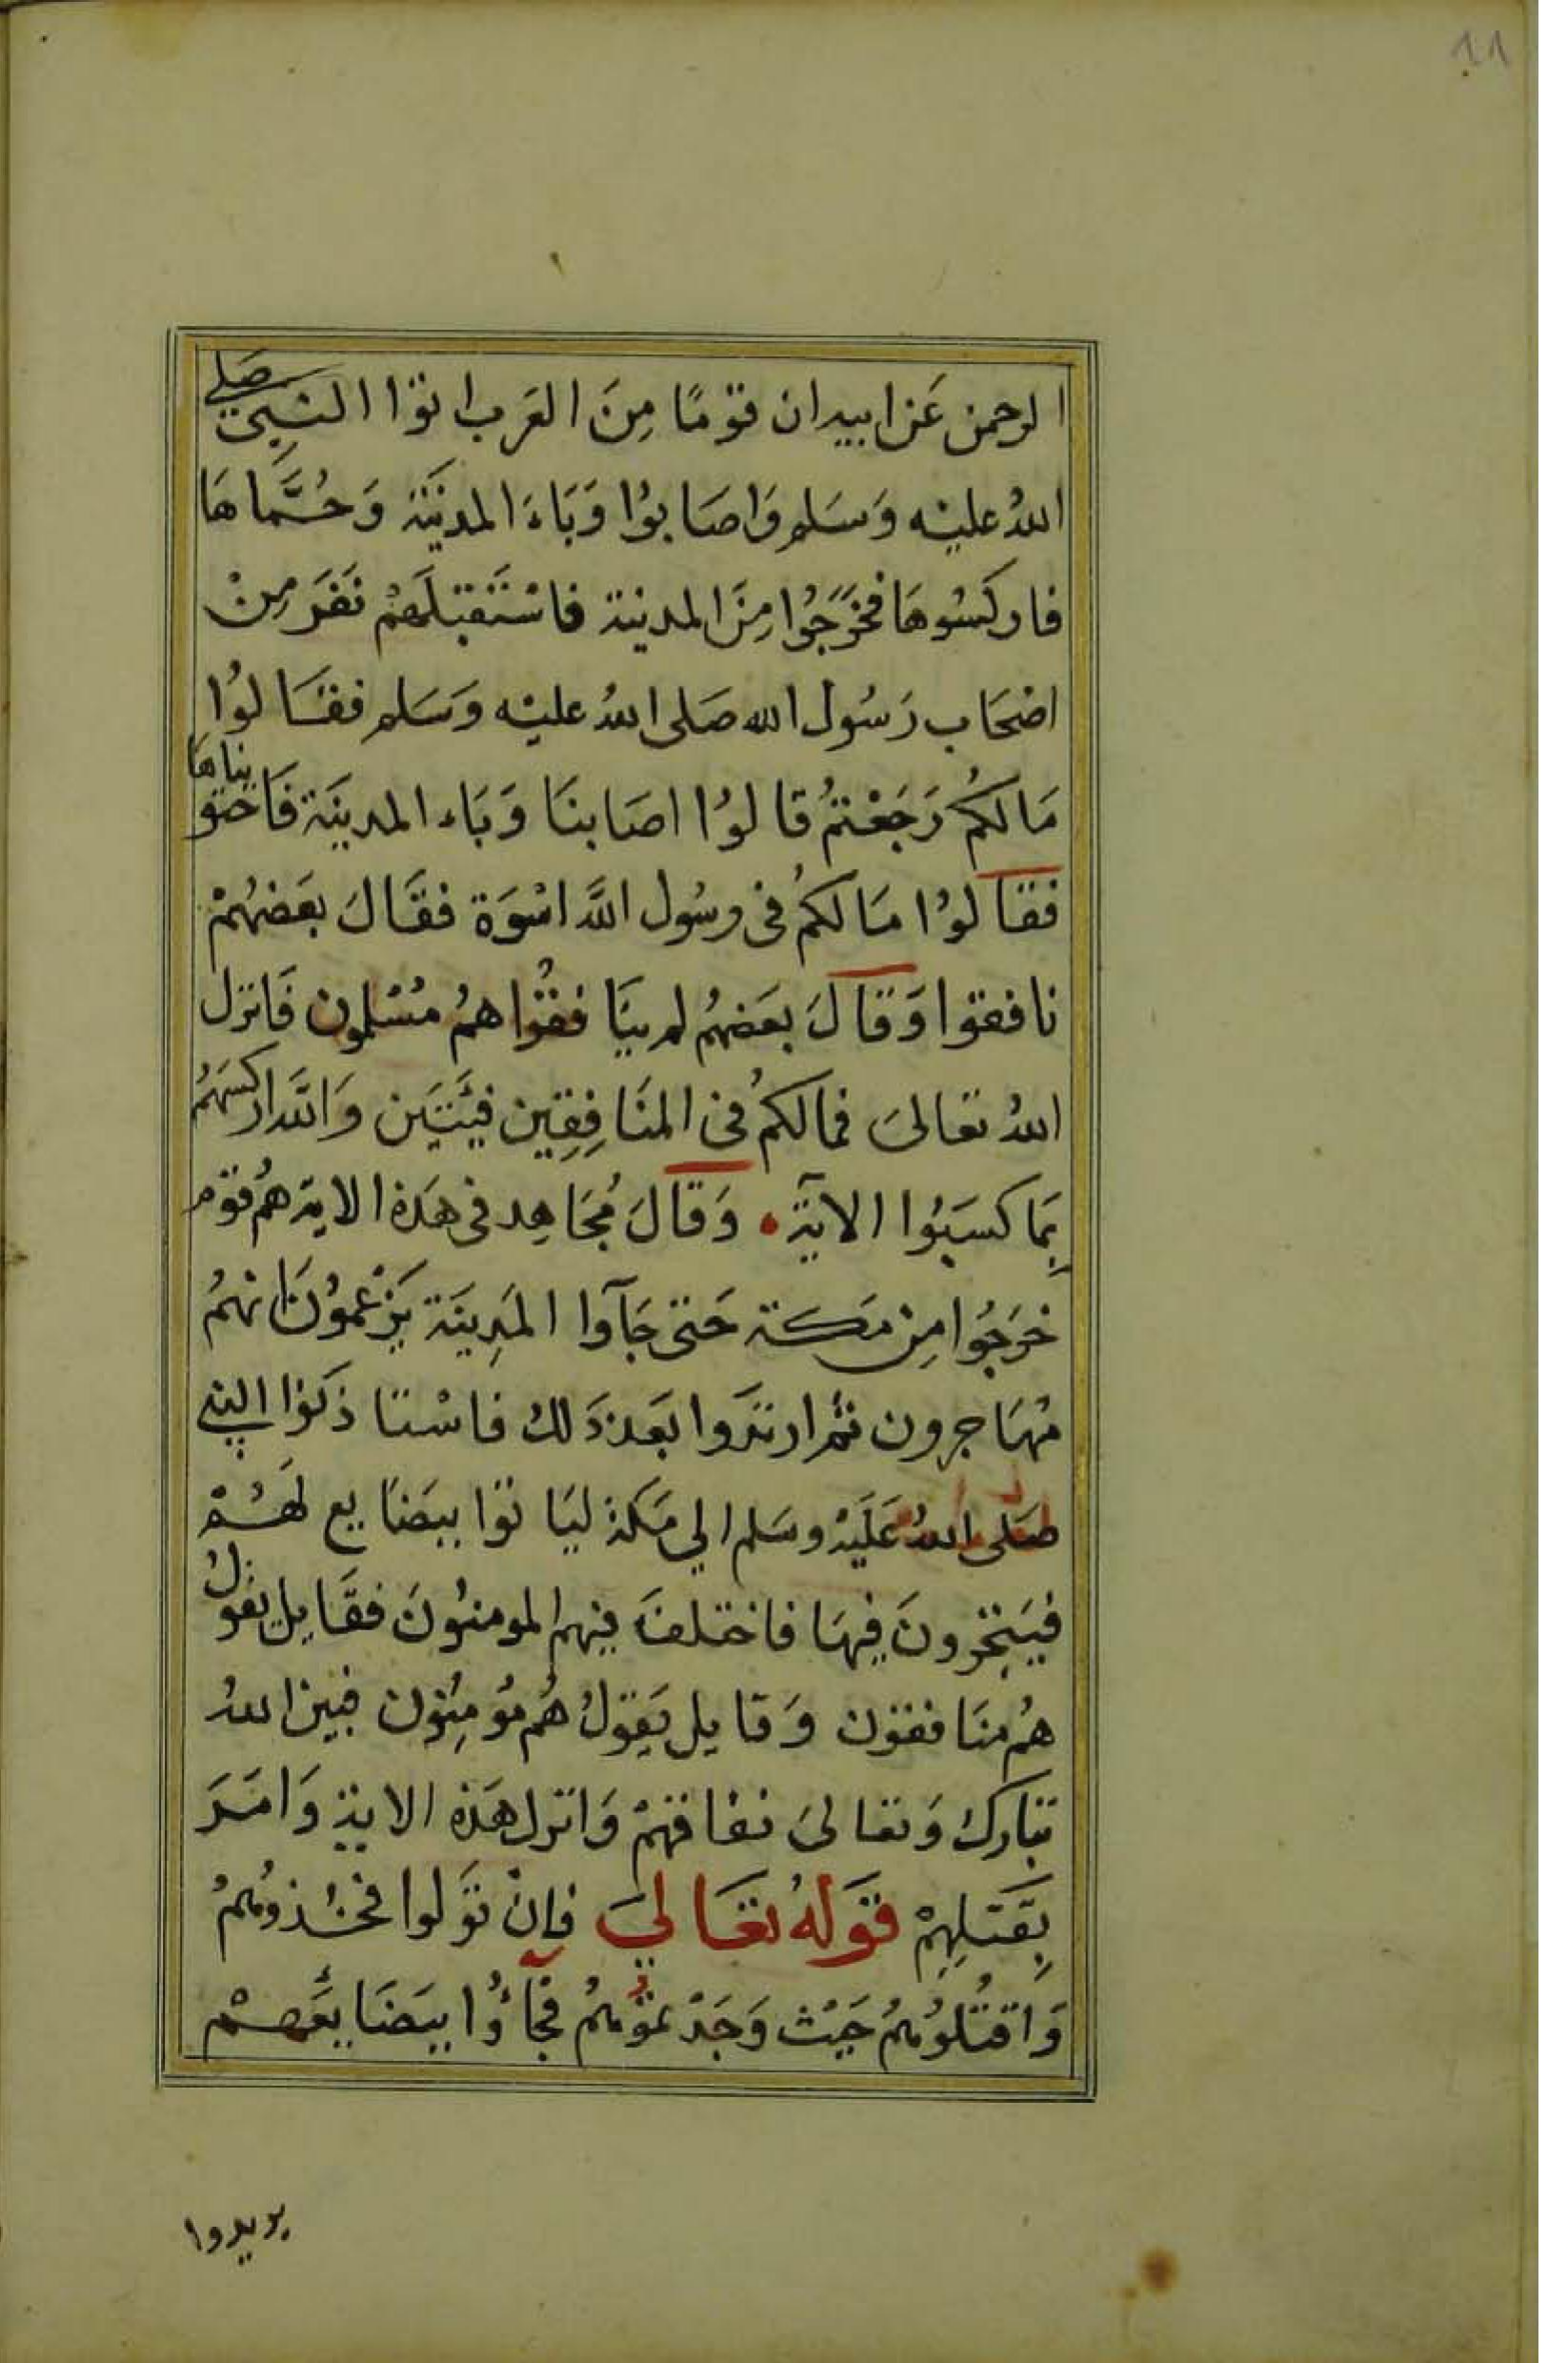 11
الرحمن عَن ابيه ان قوْمًا مِنَ العَرب اتوْا النبِيّ صَلى
اللهُ عليْه وَسَلم وَاصَابوُا وَبَاءَ المدينَة وَحُمَّاهَا
فاركسُوهَا فخَرَجُوا مِنَ المدينة فاسْتَقبَلَهُمْ نَفَر مِنْ
اصْحَاب رَسُول الله صَلى اللهُ عليْه وَسَلم فقالوُا
مَالكمُ رَجَعْتمُ قالوُا اصَابنَا وَبَاء المدينَة فَاجتويناهَا
فقالوُا مَالكمُ فى رسُول اللَّه اسْوَة فقَالَ بعَضهُمْ
نافقوا وَقالَ بعَضهُم لم ينَافقُوا همُ مُسْلمون فَانزل
اللهُ تعَالىَ فمالكمُ فى المنَافِقِين فِئَتَيَن وَاللَّه اركسَهمُ
بِمَا كسَبُوا الآيَة • وَقالَ مُجَاهِد فى هَذه الاية همُ قوْم
خرَجُوا مِنْ مَكة حَتى جَآوا المَدِينَة يَزْعمُونَ انهمُ
مُهَاجرون ثمُ ارتدَوا بعَد ذَلكُ فاسْتاذَنوُا النبي
صَلى اللهُ عَلَيْه وسَلم الي مَكة ليَاتوْا ببضَايع لهُمْ
فيَتجِرونَ فِيهَا فاختلفَ فِيهم المومنوُنَ فقَايل يقوُل
همُ منَافقوْن وَقايل يَقوُلُ هُم موُمِنوُن فبَين اللهُ
تبَاركَ وَتعَالىَ نفاقهَمْ وَانزل هَذه الاية وَامَرَ
بِقَتلِهِمْ قوَلهُ تعَاليَ فإِنْ توَلوا فخُذوُهُمُ
وَاقتلُوُهُمُ حَيْث وَجَدْتموُهُمُ فجَاؤُا ببَضَايعَهمْ
يريدوا